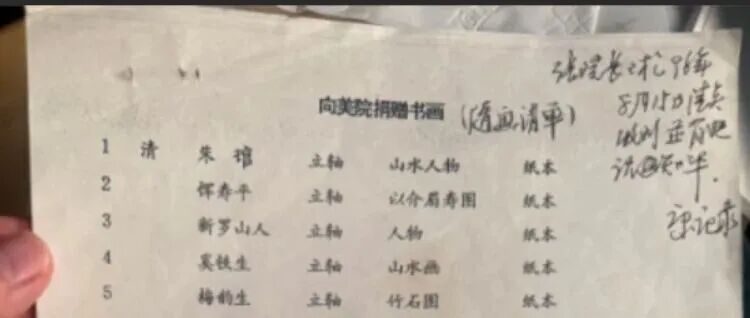 向美院捐赠书画 (清单)
1 清 朱 立轴 山水人物 纸本
2 恽寿平 立轴 以介眉寿图 纸本
3 新罗山人 立轴 人物 纸本
4 奚铁生 立轴 山水画 纸本
5 梅韵生 立轴 竹石图 纸本
张院长
8月15日清点
记录